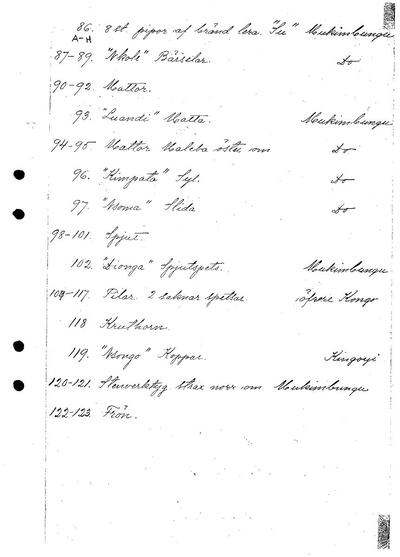 86. 8 st. pipor af bränd lera. "Su" Mukimbungu
A-H
87-89. "Nkole" Bärselar. Do
90-92. Mattor.
93. "Luandi" Matta. Mukimbungu
94-95 Mattor Maleba öster om Do
96. "Kimpata" Syl. Do
97. "Nsoma" Slida. Do
98-101. Spjut.
102. "Dionga" Spjutspets. Mukimbungu
104-117. Pilar. 2 saknar spetsar. öfvre Kongo
118 Kruthorn.
119. "Nsongo" Koppar. Kingoyi
120-121. Stenverktyg strax norr om Mukimbungu
122-123. Frön.